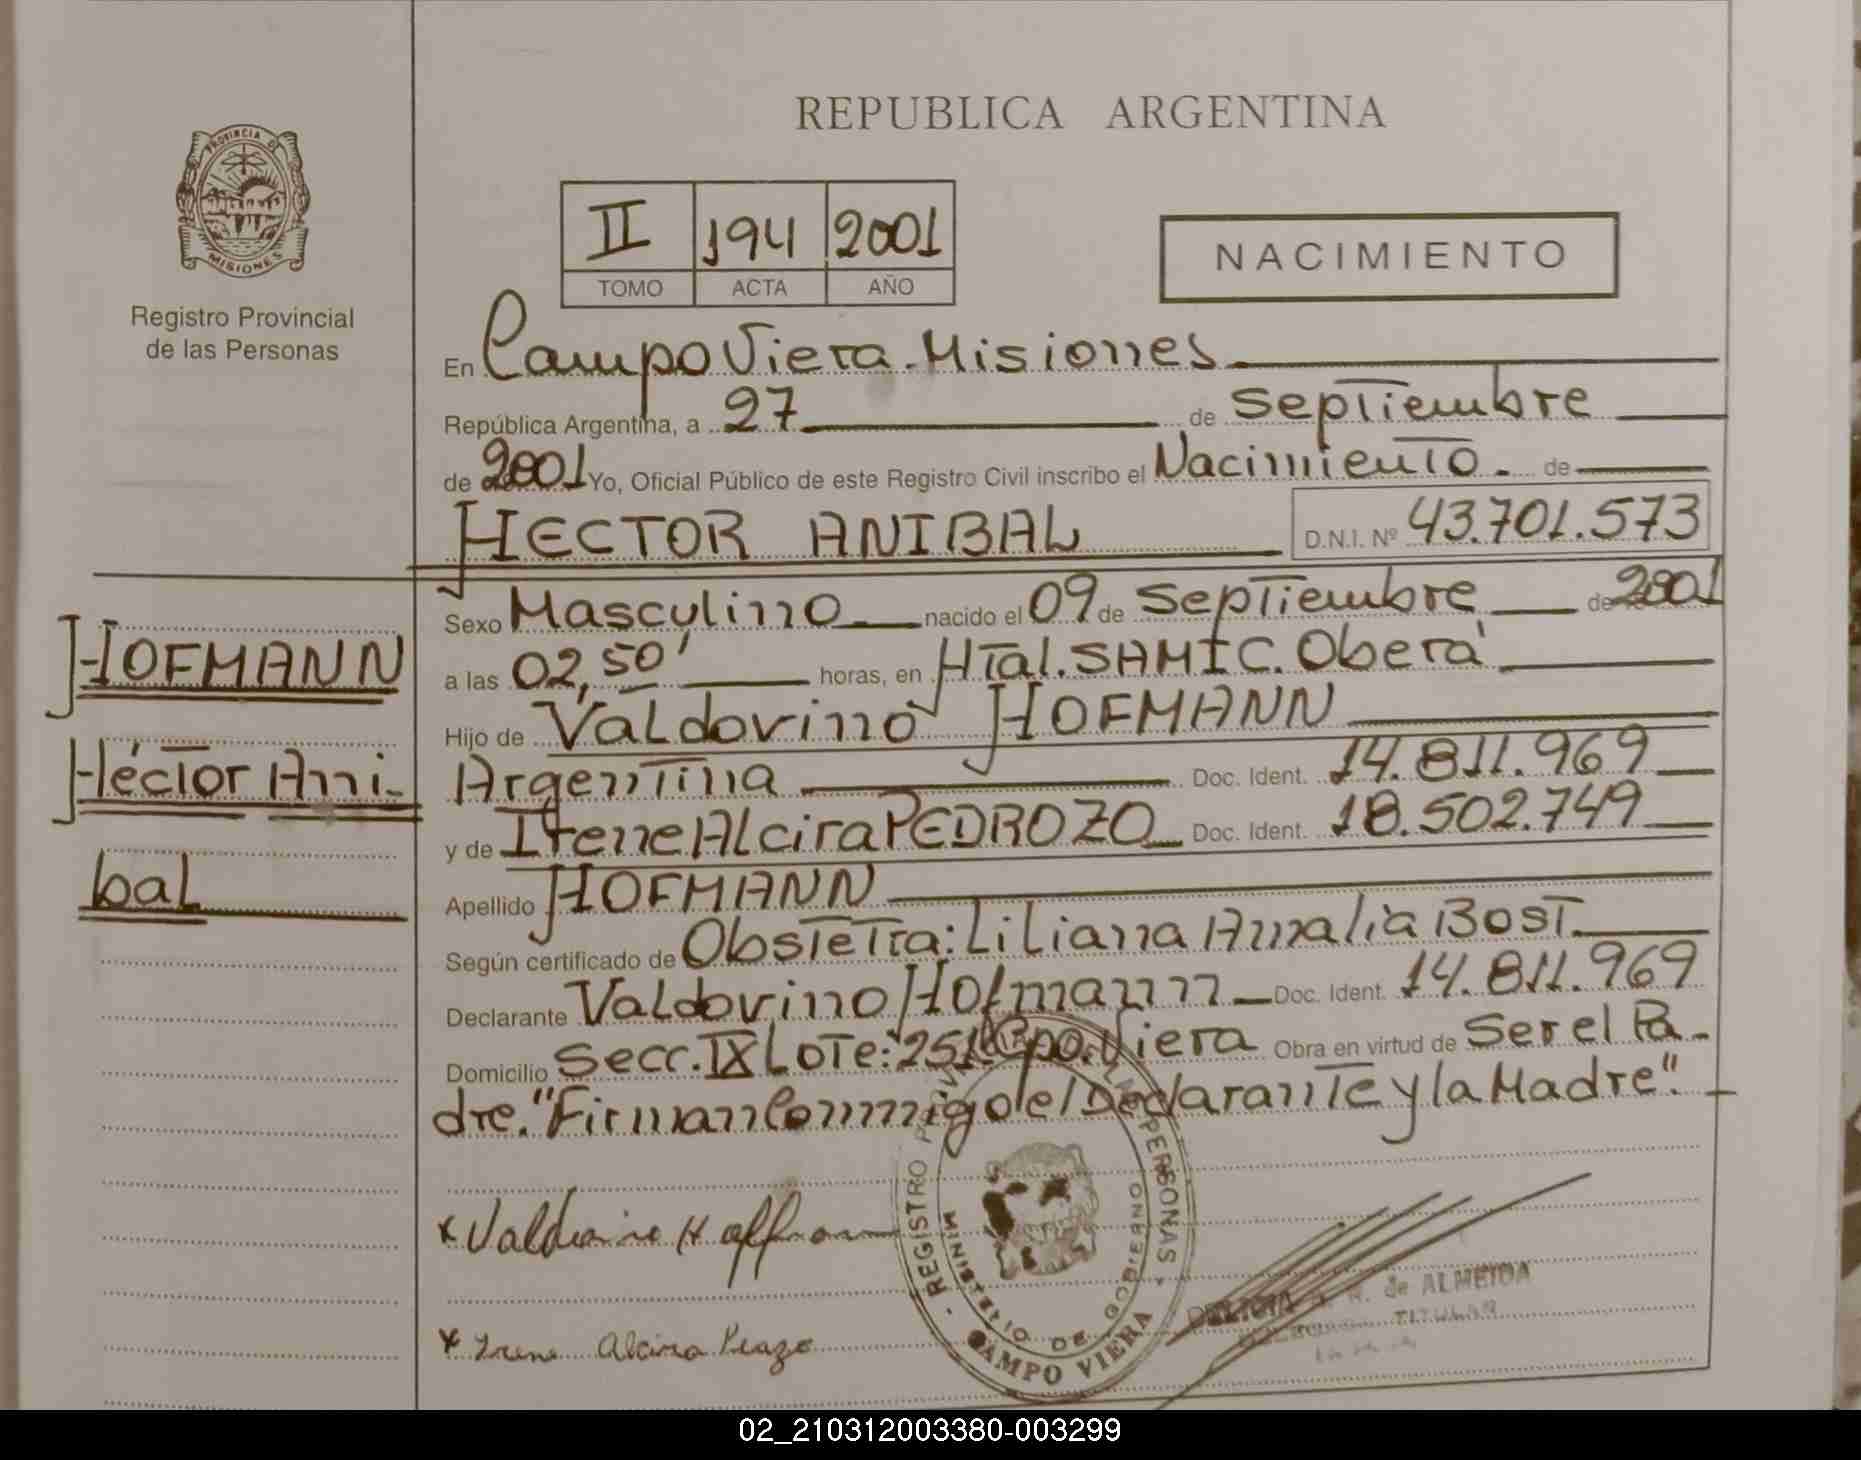 REPUBLICA ARGENTINA
PROVINCIA DE
MISIONES
Registro Provincial
de las Personas
II 194 2001
TOMO ACTA AÑO
NACIMIENTO
En Campo Viera. Misiones
República Argentina, a 27 de septiembre
de 2001 Yo, Oficial Público de este Registro Civil inscribo el Nacimiento. de
HECTOR ANIBAL D.N.I. Nº 43.701.573
HOFMANN
Héctor Ani-
bal
Sexo Masculino nacido el 09 de septiembre de 2001
a las 02,50' horas, en Htal. SAMIC. Oberá
Hijo de Valdovino HOFMANN
Argentina Doc. Ident. 14.811.969
y de Irene Alcira PEDROZO Doc. Ident. 18.502.749
Apellido HOFMANN
Según certificado de Obstetra: Liliana Amalia BOST.
Declarante Valdovino Hofmann Doc. Ident. 14.811.969
Domicilio Secc. IX Lote: 251 Cpo. Viera Obra en virtud de Ser el Pa-
dre. "Firman Conmigo el Declarante y la Madre".
x Valdovino Hoffman
x Irene Alcira
REGISTRO PERSONAS
MINISTERIO DE GOBIERNO
CAMPO VIERA
de ALMEIDA
TITULAR
02_210312003380-003299